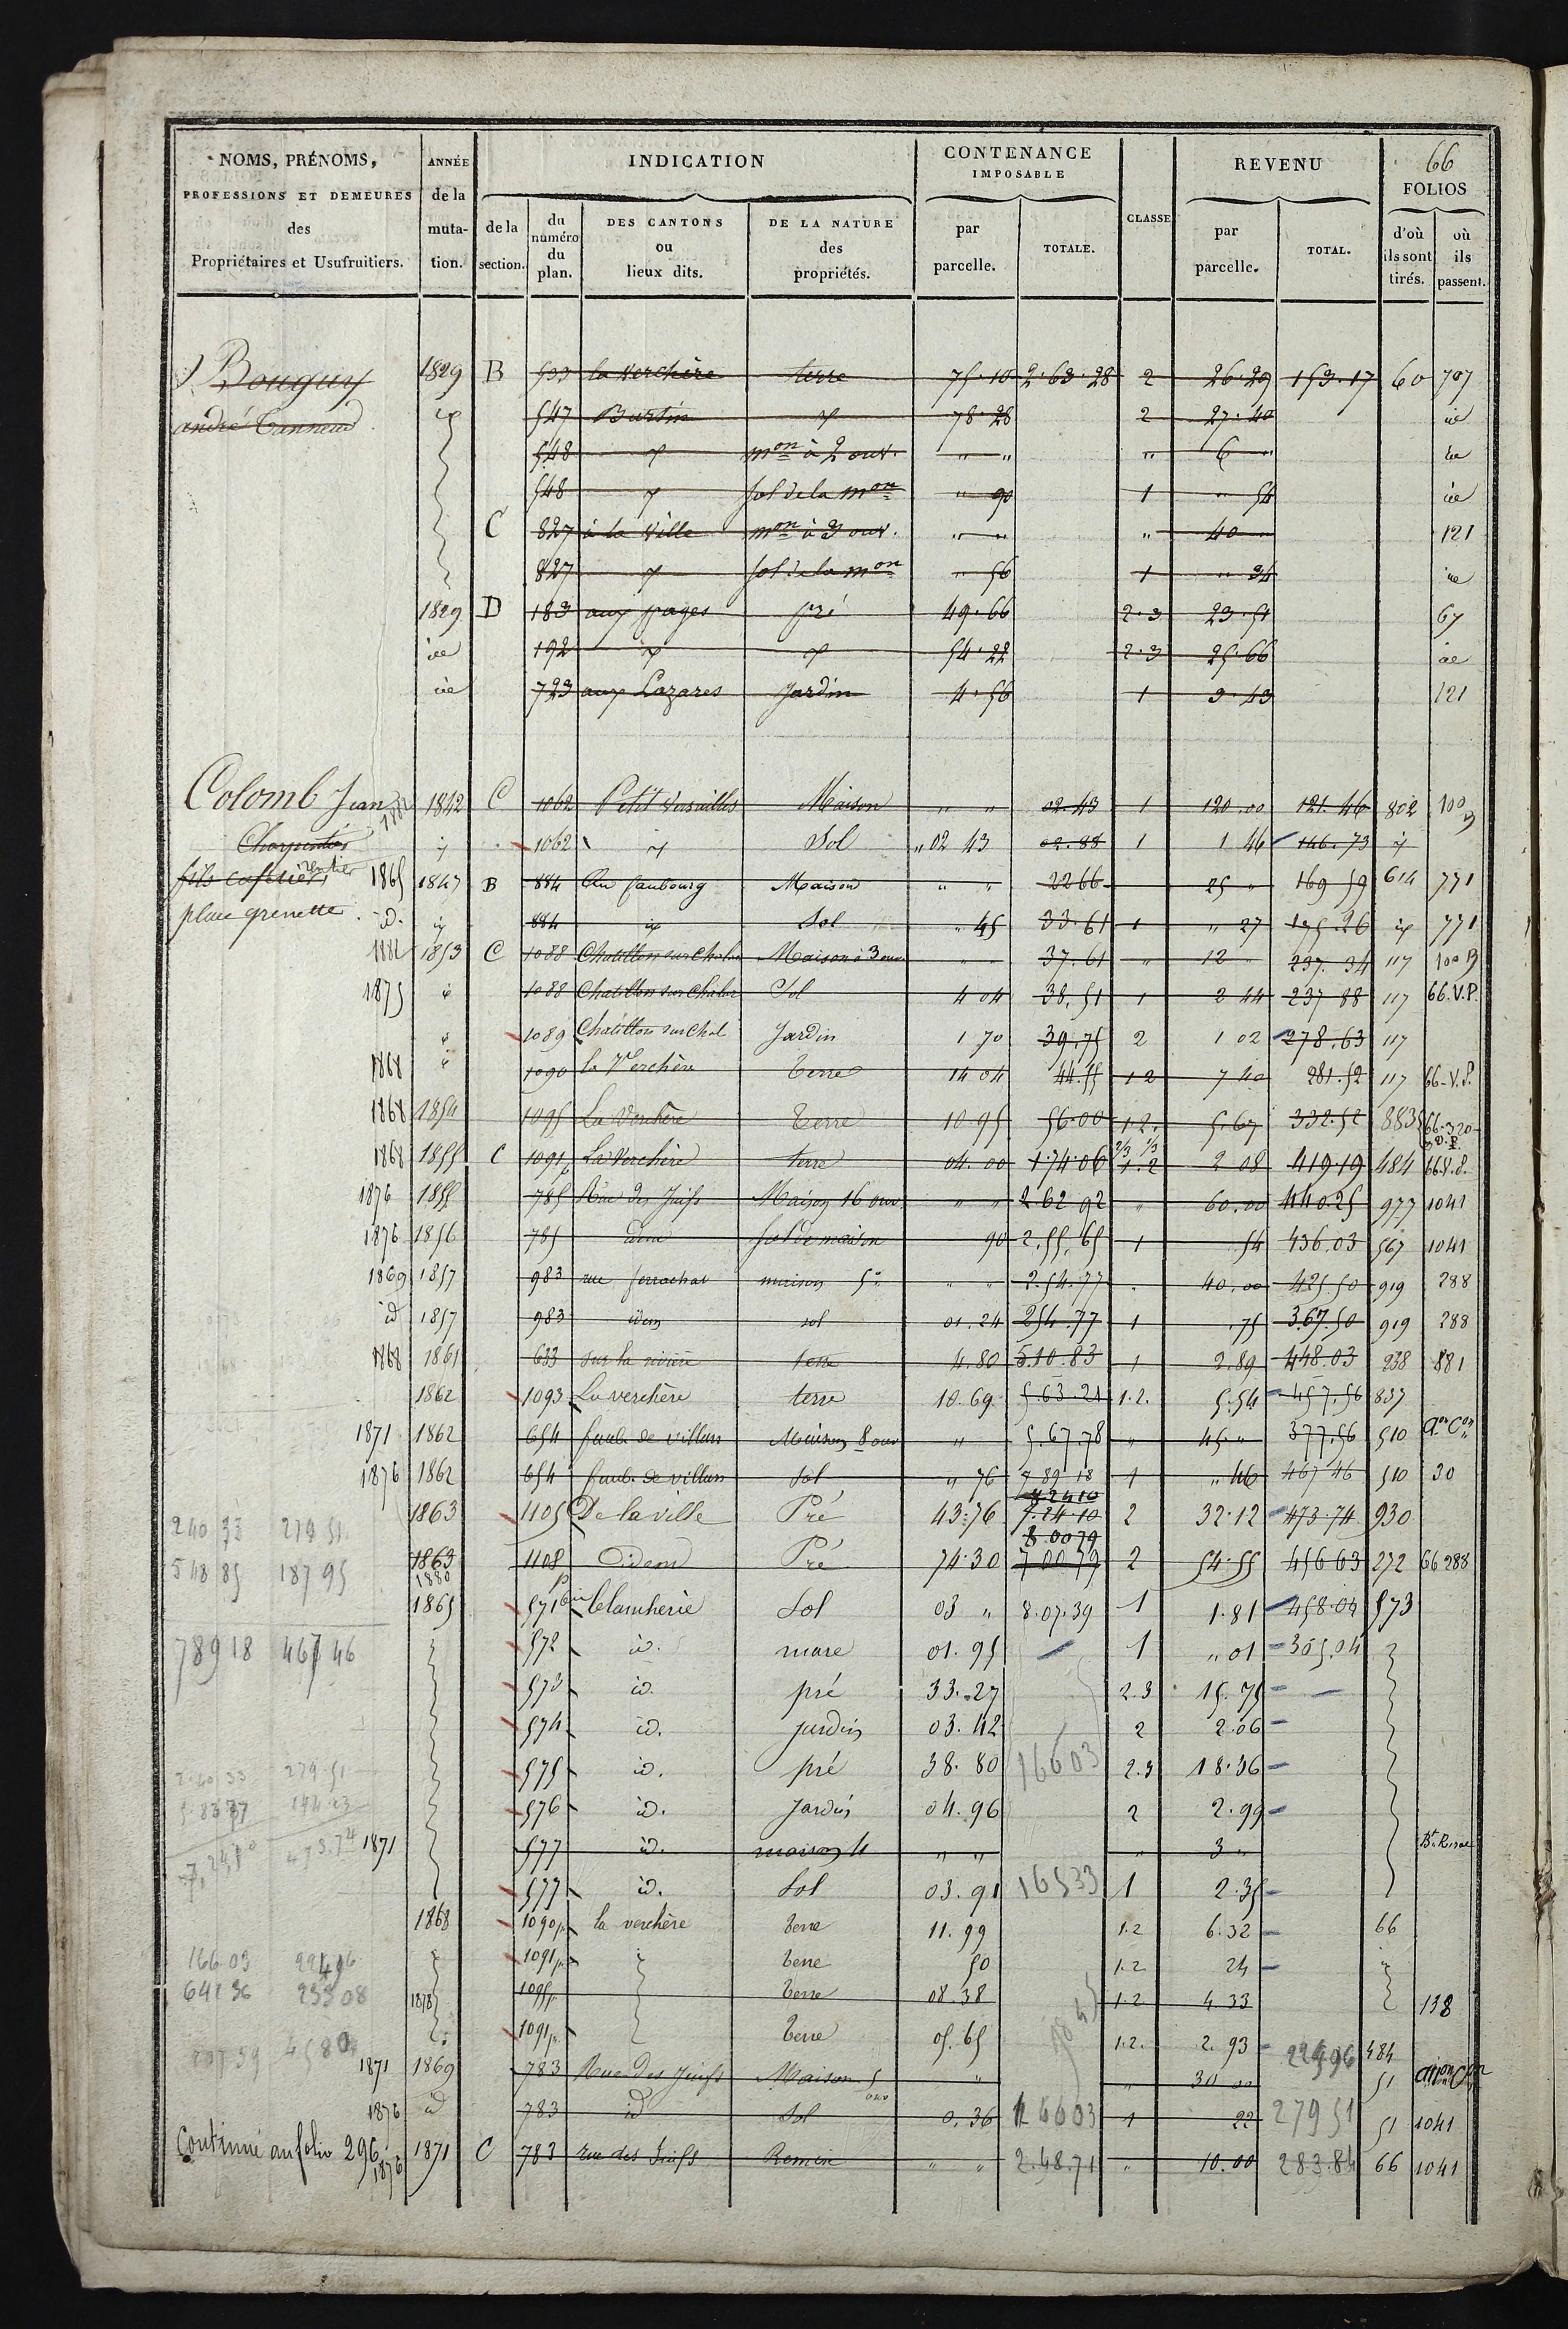 66
NOMS, PRÉNOMS, PROFESSIONS ET DEMEURES des Propriétaires et Usufruitiers.
ANNÉE de la muta- tion.
INDICATION
de la section.
du numéro du plan.
DES CANTONS ou lieux dits.
DE LA NATURE des propriétés.
CONTENANCE IMPOSABLE
par parcelle.
TOTALE.
CLASSE
REVENU
par parcelle.
TOTAL.
FOLIOS
d'où ils sont tirés.
où ils passent.
Bouguy 1829 B 533 la Verchère terre 75.10 2.63.28 2 26.29 153.17 60 707
andré Tanneur 547 Burtin 78.28 2 27.40 id
548 mon à 2 ouv. " " " 6 "
548 sol de la mon " 90 1 " 54 id
C 827 à la Ville mon à 3 ouv. " " " 40 121
827 sol de la mon " 56 1 " 34
1829 D 183 aux pages pré 49.66 2.3 23.51 67
192 54.22 2.3 25.66
723 aux Lazares Jardin 4.56 1 3.43 121
Colomb Jean 1842 C 1062 Petit Versailles Maison " " 02.43 1 120.00 121.46 802 100
Charpentier 1062 Sol " 02 43 02.88 1 1 46 146.73
rentier 1865 1847 B 884 Au faubourg Maison " " 22 66 25 " 169 59 614 771
place grenette. d. 884 Sol " 45 33.61 1 " 27 195.26 771
1882 1853 C 1088 Chatillon sur Chalar Maison à 3 ouv " " 37.61 " 12 " 237.34 117 100
1875 1088 Chatillon sur Chalar Sol 4 04 38.51 1 2 44 237 88 117 66.V.P.
1089 Chatillon sur Chal Jardin 1 70 39.75 2 1 02 278.63 117
1868 1090 la Verchère Terre 14 04 44.55 1 2 7 40 281.52 117 66-V.P.
1868 1854 1095 La Verchère Terre 10 95 56.00 1.2. 5.67 332.52 883 66.320
1868 1855 C 1091 La Verchère terre 04.00 1.74.06 2/3 1/3 1.2 2 08 419 19 484 66.V.P.
1876 1855 785 Rue des Juifs Maison 16 ouv " " 2.62 92 " 60.00 440.25 977 1041
1876 1856 785 idem sol de maison 90 2.55.65 1 54 436.03 567 1041
1869 1857 983 rue ferrachat maison 5° " " 2.54.77 " 40.00 425.50 919 288
id 1857 983 idem sol 01.24 254.77 1 .75 367.50 919 288
1868 1861 633 sur la rivière terre 4.80 5.10.83 1 2.89 448.03 238 881
1862 1093 La verchère terre 10.69 5.63.21 1.2. 5.54 457.56 837
1871 1862 654 faub. de villars Maison 8 ouv " 5.67.78 " 45 " 377.56 510 aon Con
1876 1862 654 faub. de villars Sol " 76 7 89 18 1 " 46 467 46 510 30
1863 1105 De la ville Pré 43.76 7.24.10 2 32.12 473 74 930
8 00 79
1863 1880 1108 Idem Pré 74.30 7 00 79 2 54.55 456 63 272 66 288
1865 571 blancherie Sol 03 " 8.07.39 1 1.81 458.04 573
572 id. mare 01.95 1 " 01 305.04
573 id. pré 33.27 2.3 15.75
574 id. jardin 03.42 2 2.06
575 id. pré 38.80 16603 2.3 18.36
576 id. Jardin 04.96 2 2.99
1871 577 id. maison 4 " " " 3 " Bt. Rural
577 id. Sol 03.91 16533 1 2.35
1868 1090p. la verchère Terre 11.99 1.2 6.32 66
1091p. Terre 50 1.2 24
1878 1095p. Terre 08.38 1.2 4 33 138
1091p. Terre 05.65 1.2. 2.93 22496 484
1871 1869 783 Rue des Juifs Maison 5 ouv " " 30 00 51
1876 id 783 id Sol 0.36 16603 1 22 27951 51 1041
Continué au folio 296 1876 1871 C 783 rue des Juifs Remise " " 2.48.71 " 10.00 283.84 66 1041
240 33 279 51
548 85 187 95
789 18 467 46
2.40 33 279.51
5.83 77 194 23
7,24,10 473.74
166 03 224 96
641 36 233 08
807 39 458 04